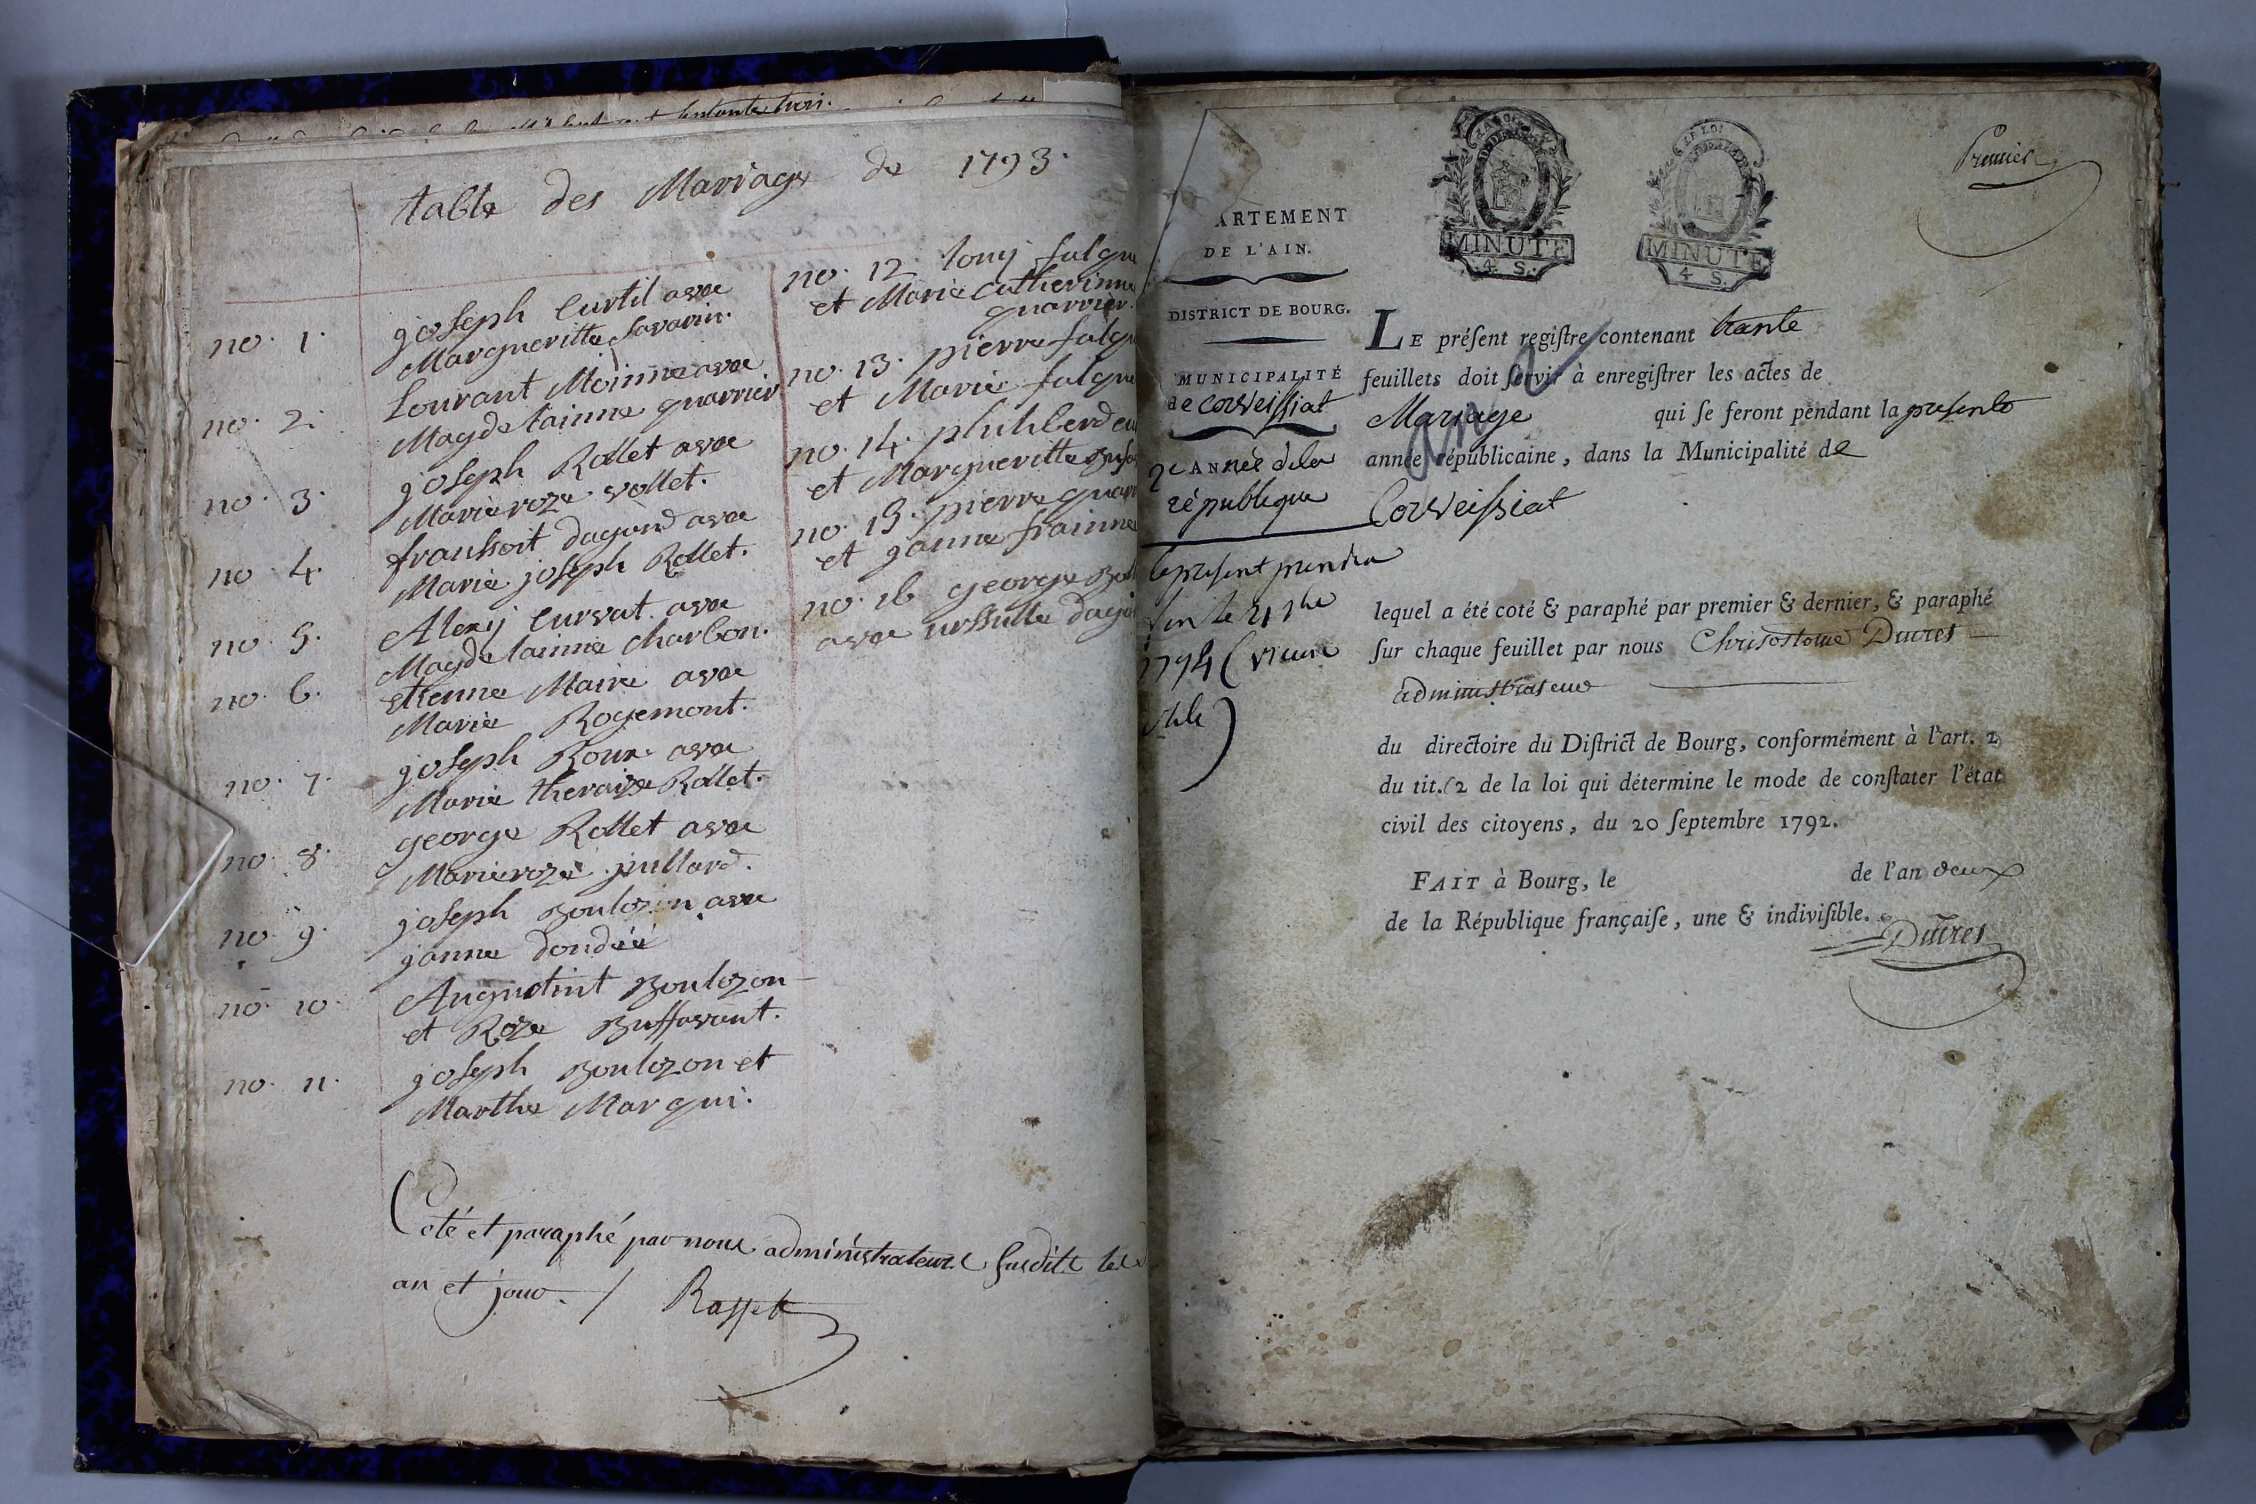 table des Mariage de 1793.
no. 1. joseph Curtil avec
Margueritte Savarin.
no. 2. Lourant Moinne avec
Magdelainne quarrier
no. 3. joseph Rollet avec
Marie roze vollet.
no. 4. fransoit dagond avec
Marie joseph Rollet.
no. 5. Alexij Cursat avec
Magdelainne charbon.
no. 6. etienne Maire avec
Marie Rogemont.
no. 7. joseph Roux avec
Marie theraize Rollet.
no. 8. george Rollet avec
Marie roze juillard.
no. 9. joseph Boulozon avec
janne dondéé
no. 10. Augustint Boulozon
et Roze Buffavant.
no. 11. joseph Boulozon et
Marthe Marqui.
no. 12. louij falque
et Marie Catherinne
quarrier.
no. 13. pierre falque
et Marie falque
no. 14.
et Margueritte
no. 15. pierre
et janne frainne
no. 16 george
avec urssulle
Coté et paraphé par nous administrateur susdit les
an et jour. / Rasset
Premier
MINUTE
4 S.
LA LOI
MINUTE
4 S.
ARTEMENT
DE L'AIN.
DISTRICT DE BOURG.
MUNICIPALITÉ
de Corveissiat
2e ANNée dela
république
le présent prendra
fin le
1794 (vieux
stile)
LE préſent regiſtre contenant trante
feuillets doit ſervir à enregiſtrer les actes de
Mariage qui ſe feront pendant la presente
année républicaine, dans la Municipalité de
Corveissiat
lequel a été coté & paraphé par premier & dernier, & paraphé
ſur chaque feuillet par nous Chrisostome Ducret
administrateur
du directoire du Diſtrict de Bourg, conformément à l'art. 2
du tit. 2 de la loi qui détermine le mode de conſtater l'état
civil des citoyens, du 20 ſeptembre 1792.
FAIT à Bourg, le de l'an deux
de la République françaiſe, une & indiviſible.
Ducret